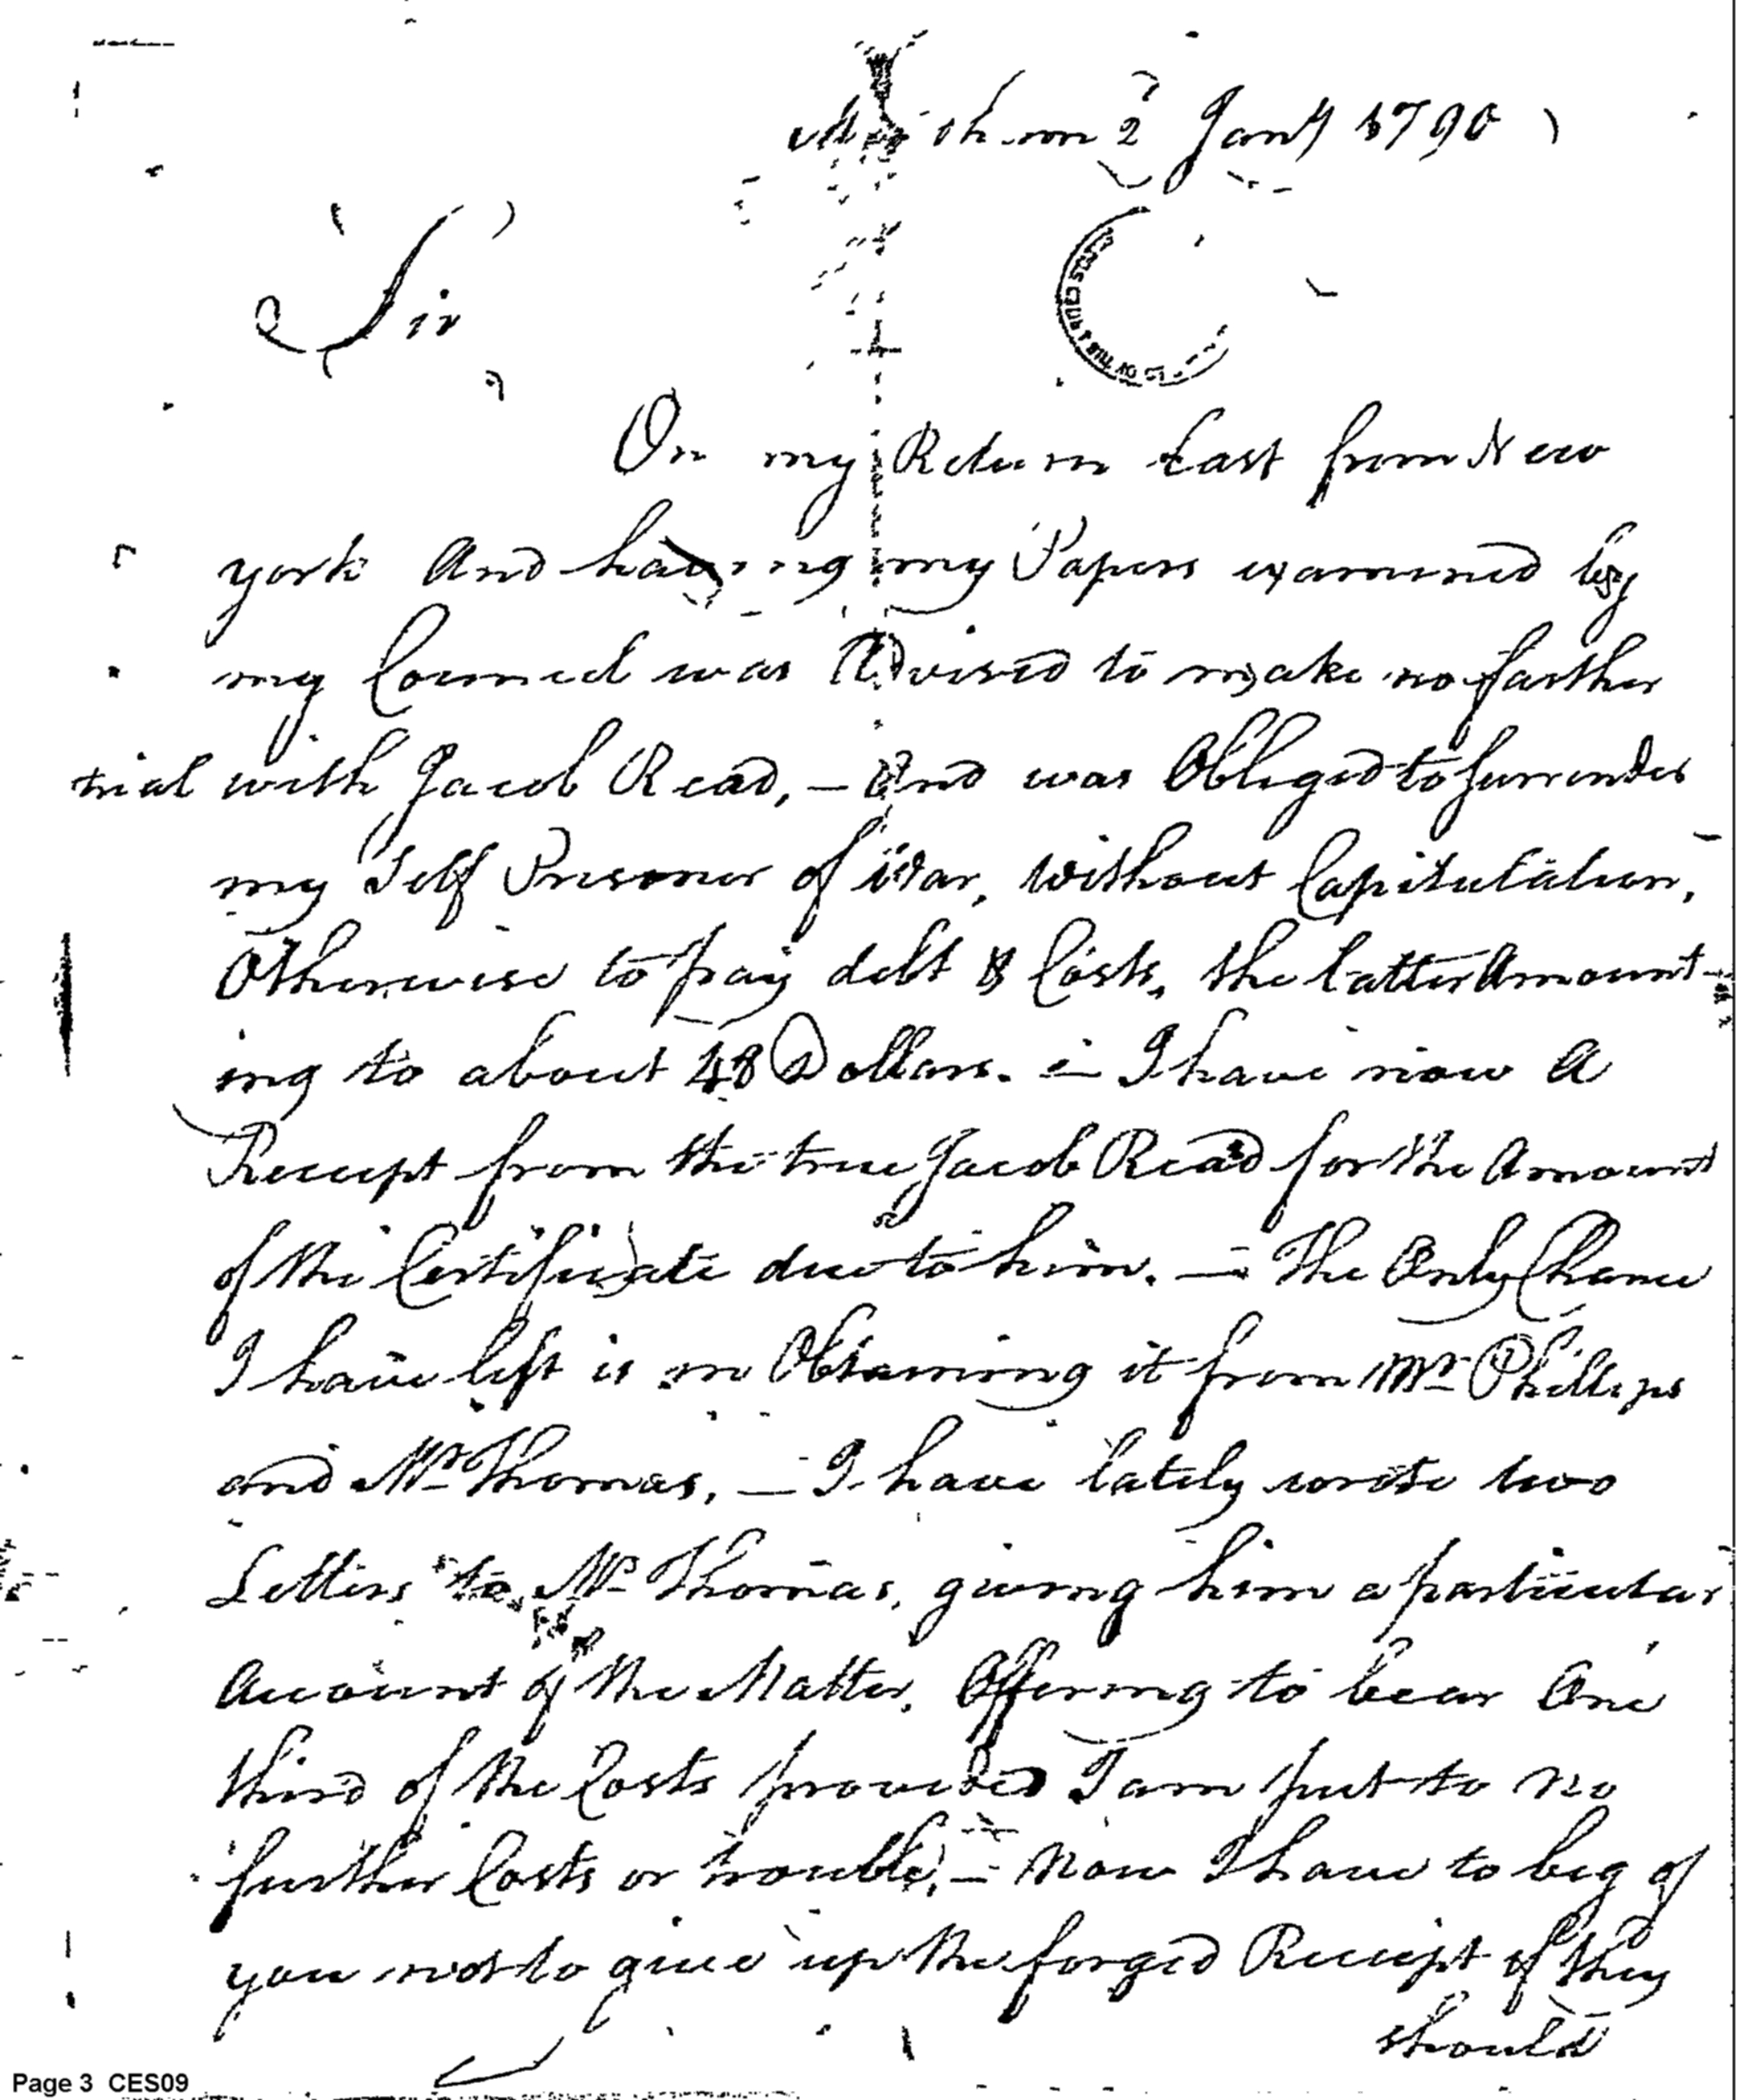 2 Jany 1790
Sir
On my Return East from New
york And having my Papers examined by
my Councel was Advised to make no farther
trial with Jacob Read, — And was Obliged to Surrender
my Self Prisoner of War, without Capitulation,
Otherwise to pay debt & Costs, the latter Amount-
ing to about 48 Dollars. — I have now A
Receipt from the true Jacob Read for the Amount
of the Certificate due to him. — The Only Chance
I have left is in Obtaining it from Mr Phillips
and Mr Thomas, — I have lately wrote two
Letters to Mr Thomas, giving him a particular
Account of the Matter, Offering to bear One
third of the Costs provided I am put to no
further Costs or trouble, — Now I have to beg of
you not to give up the forged Receipt if they
should
Page 3 CES09